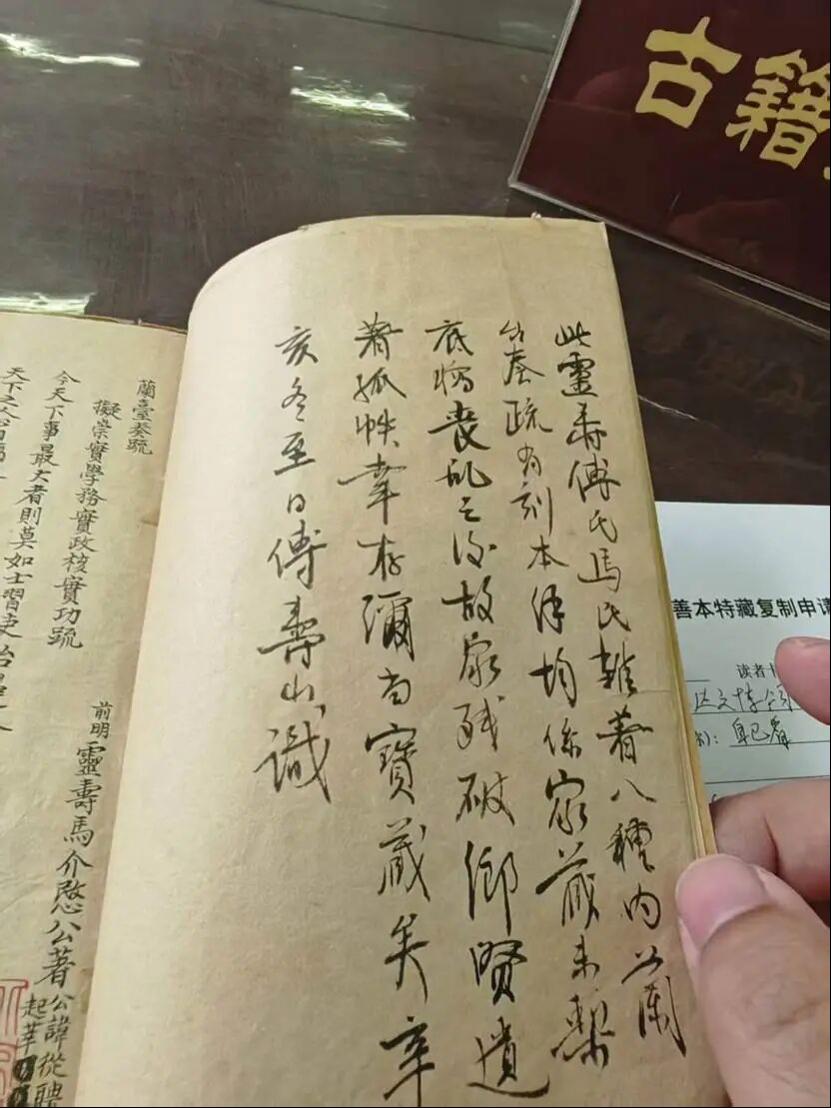 古籍
此靈壽傅氏馬氏雜著八種內蘭
台奏疏有刻本餘均係家藏未梨
底稿喪亂之後故家殘破鄉賢遺
著孤帙幸存彌當寶藏矣辛
亥冬至日傅壽山識
蘭臺奏疏
擬崇實學務實政核實功疏
今天下事最大者則莫如士習吏治
天下之人
前明靈壽馬介愍公著
公諱從聘
起莘
善本特藏复制申请
读者
自己看